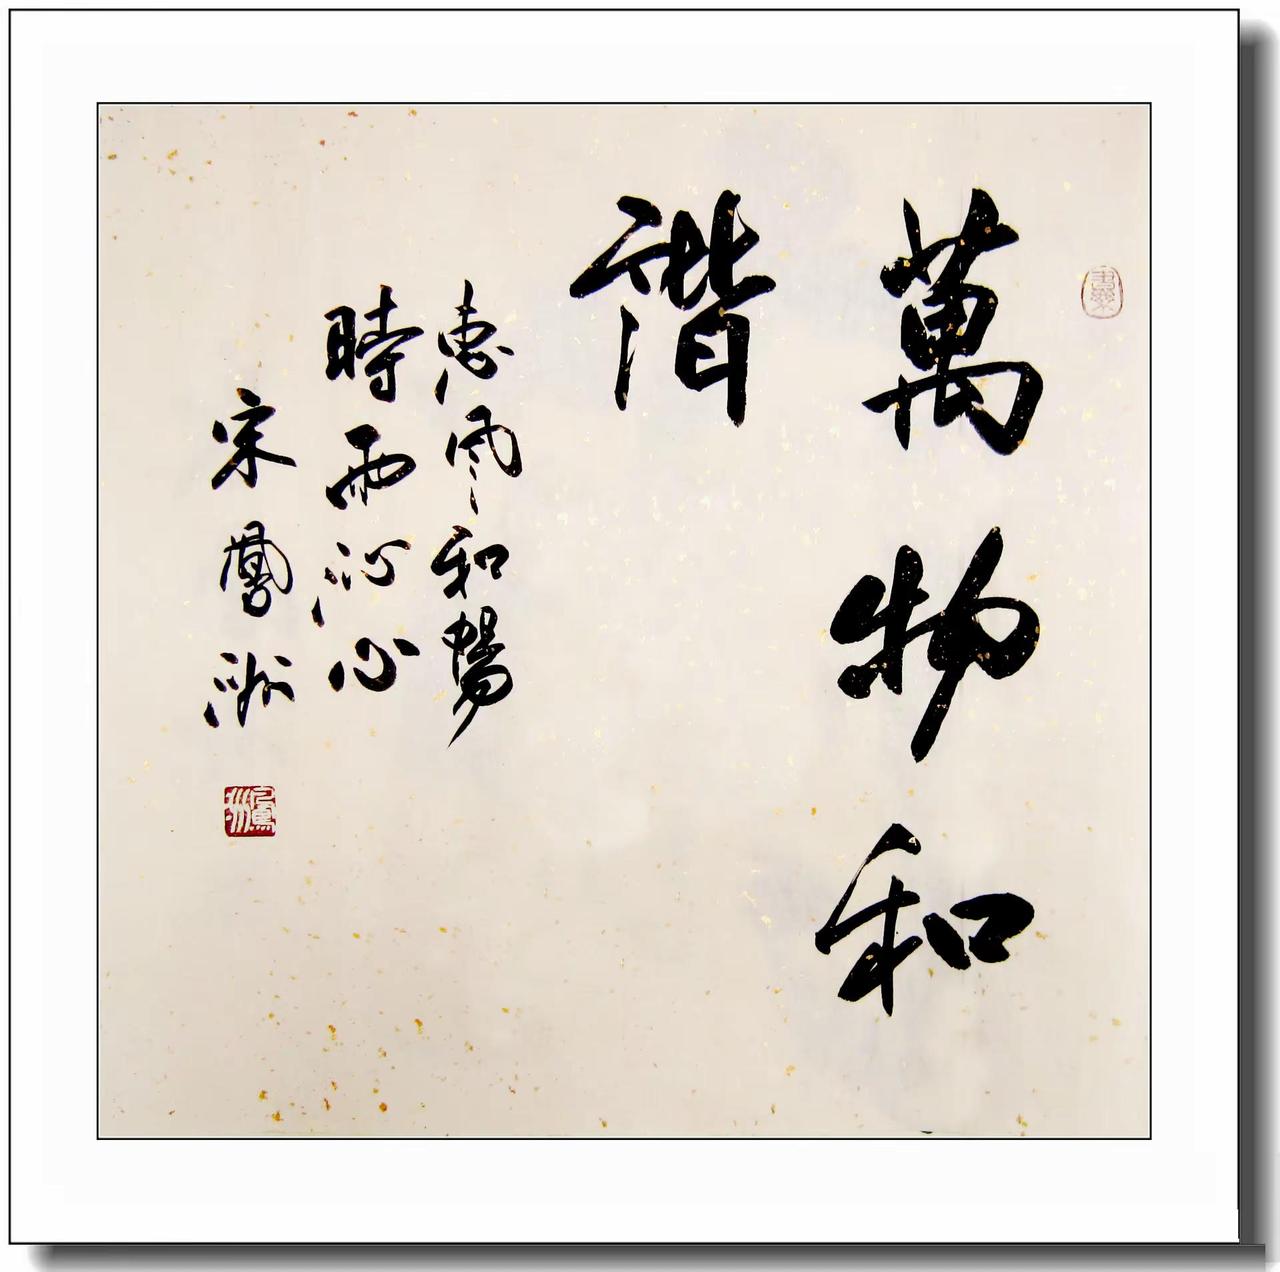 萬物和
諧
惠風和暢
時雨沁心
宋鳳洲